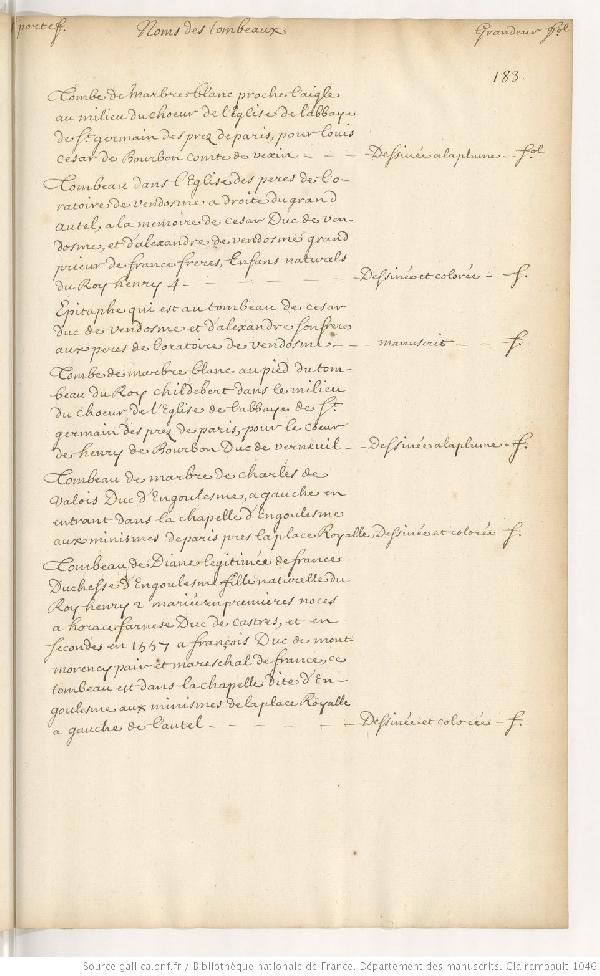 portef. Noms des tombeaux Grandeur fol
183.
Tombe de marbre blanc proche l'aigle
au milieu du choeur de l'Eglise de l'abbaye
de St. germain des prez de paris, pour Louis
Cesar de Bourbon comte de vexin - - - Dessinée a la plume - fol
Tombeau dans l'Eglise des peres de l'o-
ratoire de vendosme a droite du grand
autel, a la memoire de cesar Duc de ven-
dosme, et d'alexandre de vendosme grand
prieur de france freres, Enfans naturels
du Roy henry 4 - - - - - - Dessinée et colorée - f.
Epitaphe qui est au tombeau de cesar
duc de vendosme et d'alexandre son frere
aux peres de l'oratoire de vendosme - - - manuscrit - - f.
Tombe de marbre blanc au pied du tom-
beau du Roy childebert dans le milieu
du choeur de l'Eglise de l'abbaye de St.
germain des prez de paris, pour le coeur
de henry de Bourbon Duc de verneuil - - Dessinée a la plume - f.
Tombeau de marbre de charles de
Valois Duc d'Engoulesme, a gauche en
entrant dans la chapelle d'Engoulesme
aux minimes de paris pres la place Royalle, Dessinée et colorée - f.
Tombeau de Diane legitimée de france
Duchesse d'Engoulesme fille naturelle du
Roy henry 2 mariée en premieres noces
a horace farnese Duc de castres, et en
secondes en 1557 a françois Duc de mont-
morency pair et mareschal de france, ce
tombeau est dans la chapelle dite d'En-
goulesme aux minimes de la place Royalle
a gauche de l'autel - - - - - - Dessinée et colorée - f.
Source gallica.bnf.fr / Bibliothèque nationale de France. Département des manuscrits. Clairambault 1046